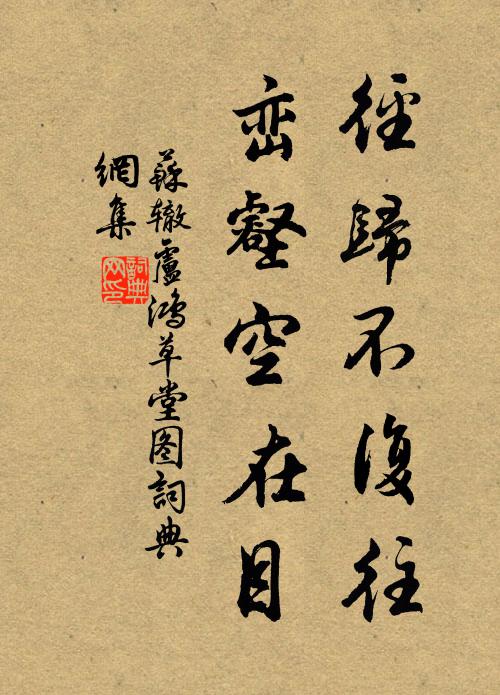 徑歸不復往
峦壑空在目
蘇辙盧鸿草堂图詞典
網集
詞典
网印